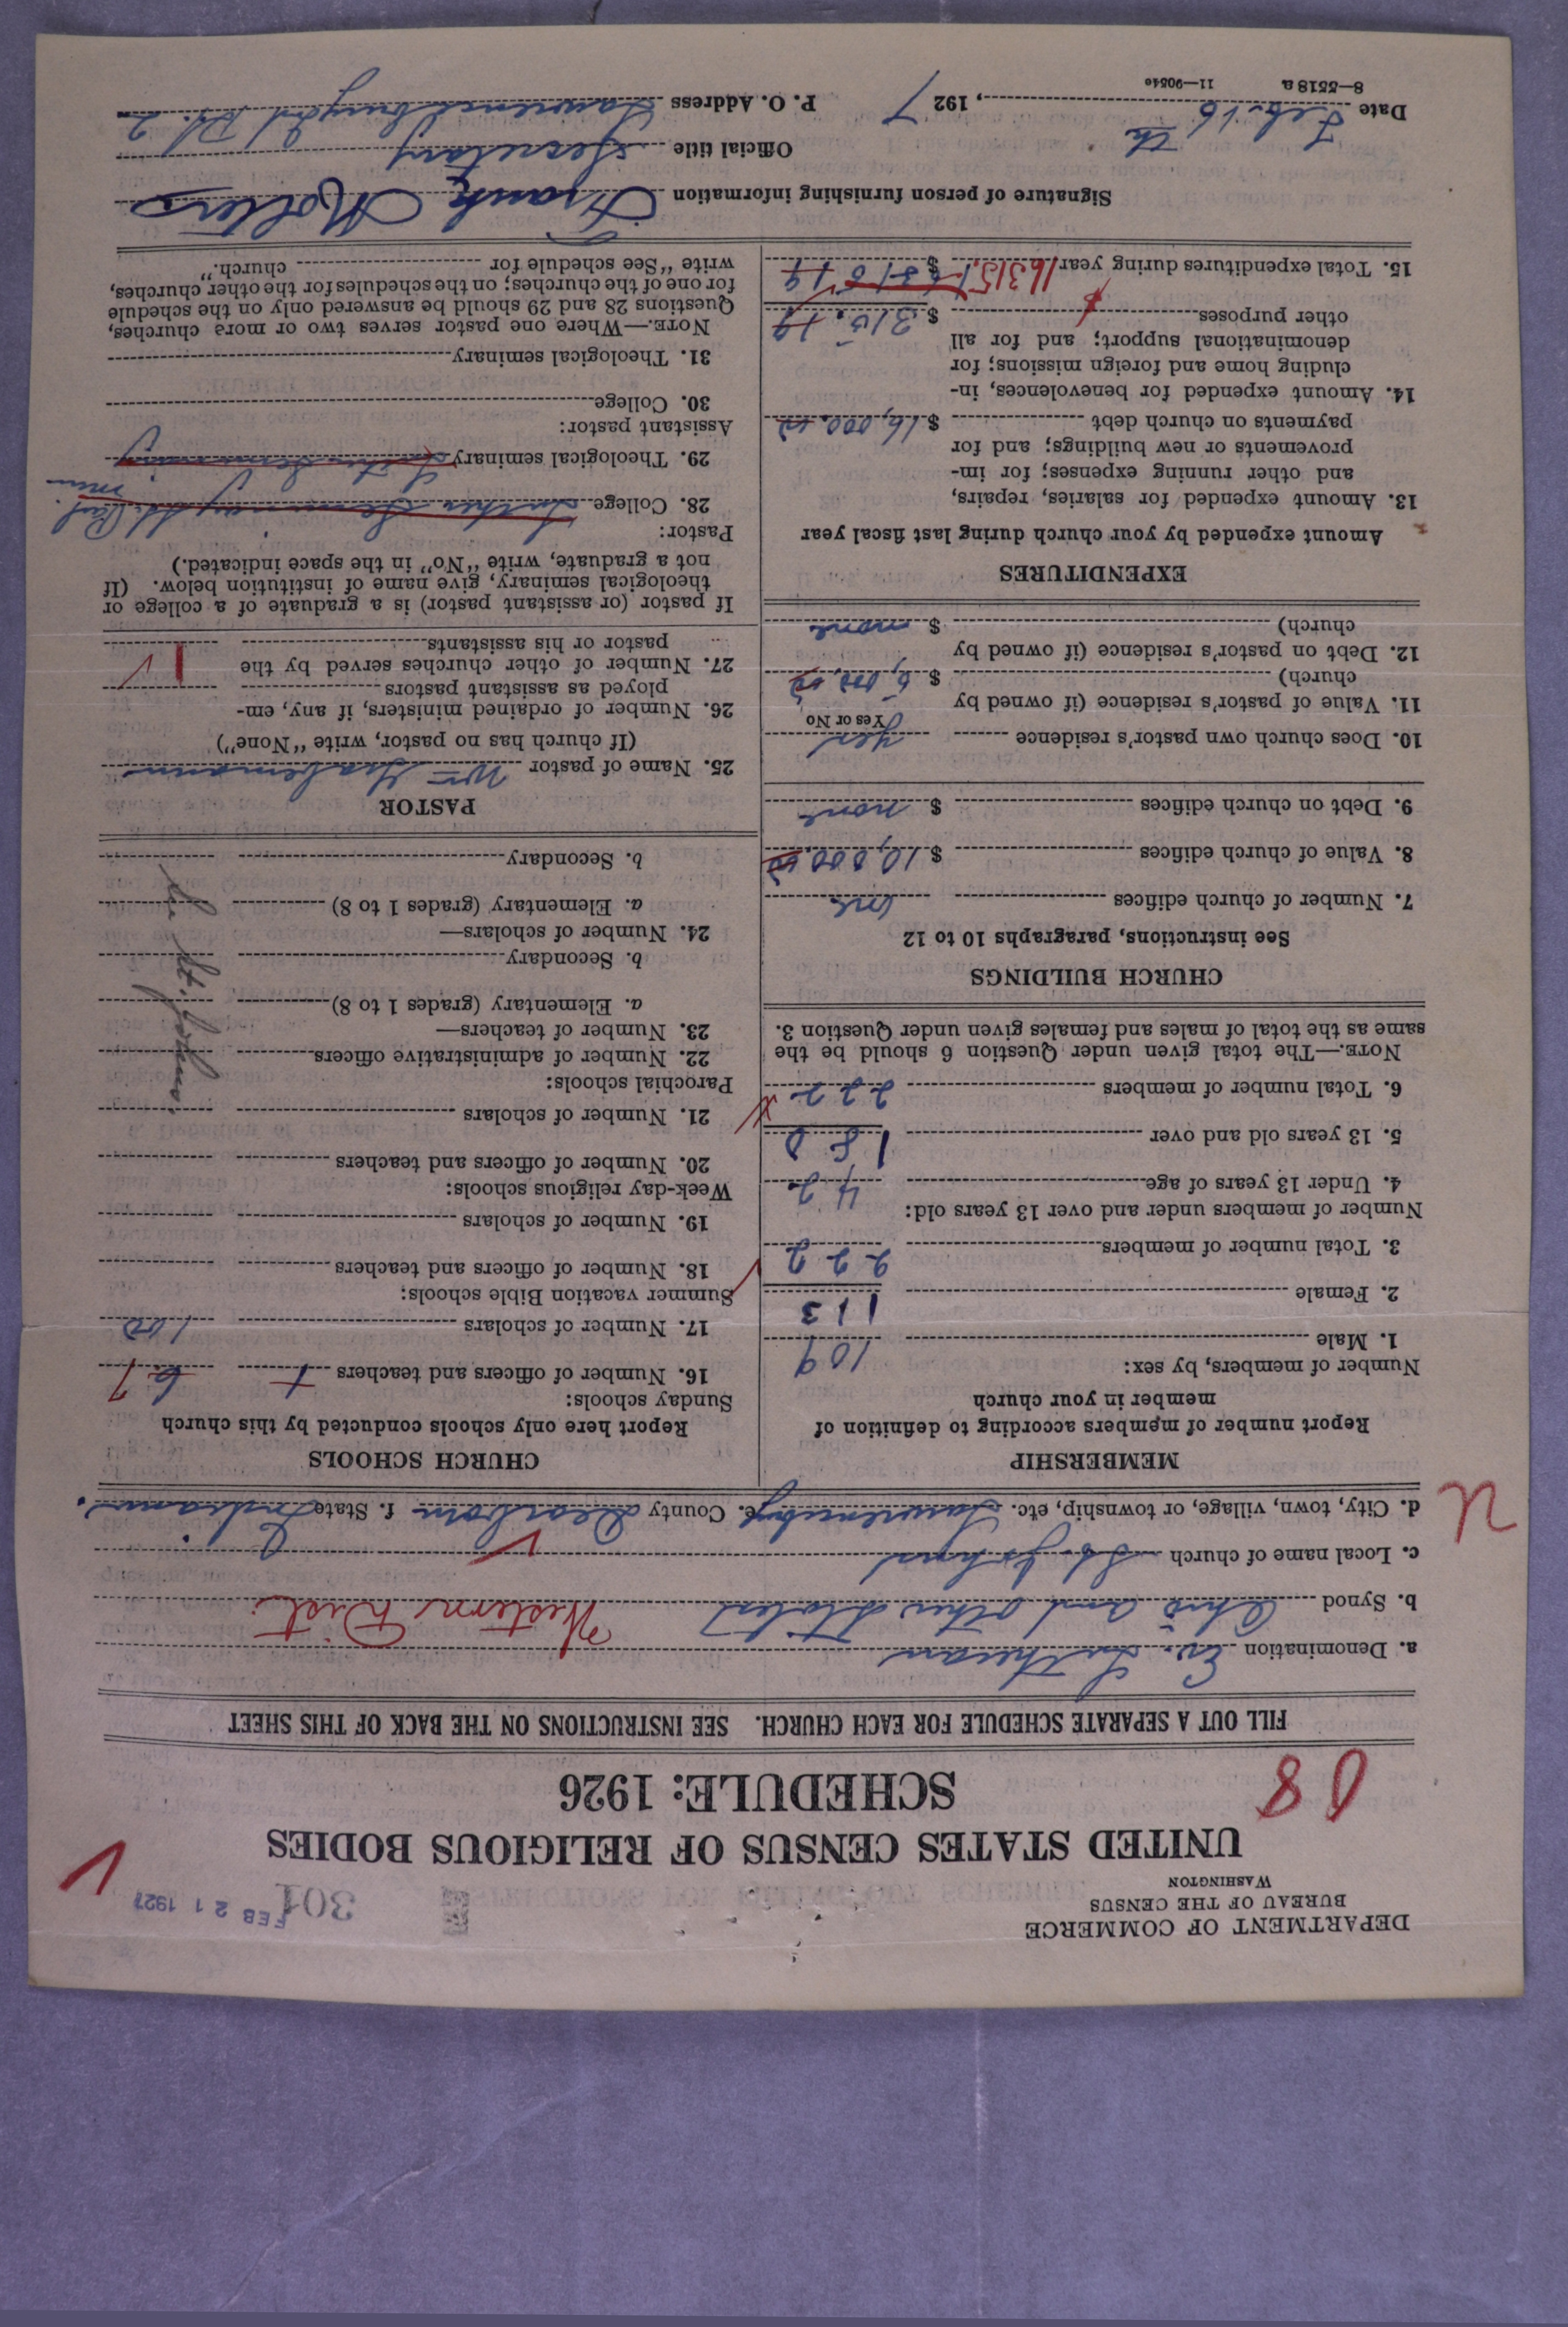 DEPARTMENT OF COMMERCE
BUREAU OF THE CENSUS
WASHINGTON
301
FEB 21 1927
UNITED STATES CENSUS OF RELIGIOUS BODIES
SCHEDULE: 1926
FILL OUT A SEPARATE SCHEDULE FOR EACH CHURCH. SEE INSTRUCTIONS ON THE BACK OF THIS SHEET
a. Denomination Ev. Lutheran
b. Synod Ohio and other States Western Dist.
c. Local name of church St. Johns
d. City, town, village, or township, etc. Lawrenceburg e. County Dearborn f. State Indiana.
MEMBERSHIP
Report number of members according to definition of
member in your church
Number of members, by sex:
1. Male 109
2. Female 113
3. Total number of members 222
Number of members under and over 13 years old:
4. Under 13 years of age 42
5. 13 years old and over 180
6. Total number of members 222
NOTE.—The total given under Question 6 should be the
same as the total of males and females given under Question 3.
CHURCH BUILDINGS
See instructions, paragraphs 10 to 12
7. Number of church edifices one
8. Value of church edifices $ 10,000.00
9. Debt on church edifices $ none
10. Does church own pastor's residence yes
Yes or No
11. Value of pastor's residence (if owned by
church) $ 6,000.00
12. Debt on pastor's residence (if owned by
church) $ none
EXPENDITURES
Amount expended by your church during last fiscal year
13. Amount expended for salaries, repairs,
and other running expenses; for im-
provements or new buildings; and for
payments on church debt $ 16,000.00
14. Amount expended for benevolences, in-
cluding home and foreign missions; for
denominational support; and for all
other purposes $ 315.19
15. Total expenditures during year 16315 $
CHURCH SCHOOLS
Report here only schools conducted by this church
Sunday schools:
16. Number of officers and teachers 7
17. Number of scholars 100
Summer vacation Bible schools:
18. Number of officers and teachers
19. Number of scholars
Week-day religious schools:
20. Number of officers and teachers
21. Number of scholars
Parochial schools:
22. Number of administrative officers
23. Number of teachers—
a. Elementary (grades 1 to 8)
b. Secondary
24. Number of scholars—
a. Elementary (grades 1 to 8)
b. Secondary
PASTOR
25. Name of pastor Wm
(If church has no pastor, write "None")
26. Number of ordained ministers, if any, em-
ployed as assistant pastors
27. Number of other churches served by the
pastor or his assistants 1
If pastor (or assistant pastor) is a graduate of a college or
theological seminary, give name of institution below. (If
not a graduate, write "No" in the space indicated.)
Pastor:
28. College Luther Seminary St. Paul Minn
29. Theological seminary Luther Seminary
Assistant pastor:
30. College
31. Theological seminary
NOTE.—Where one pastor serves two or more churches,
Questions 28 and 29 should be answered only on the schedule
for one of the churches; on the schedules for the other churches,
write "See schedule for church."
Signature of person furnishing information Frank Nolters
Official title Secretary
Date Feb. 16 th, 1927 P. O. Address Lawrenceburg Ind R. 2
8—5518 a 11—9054c